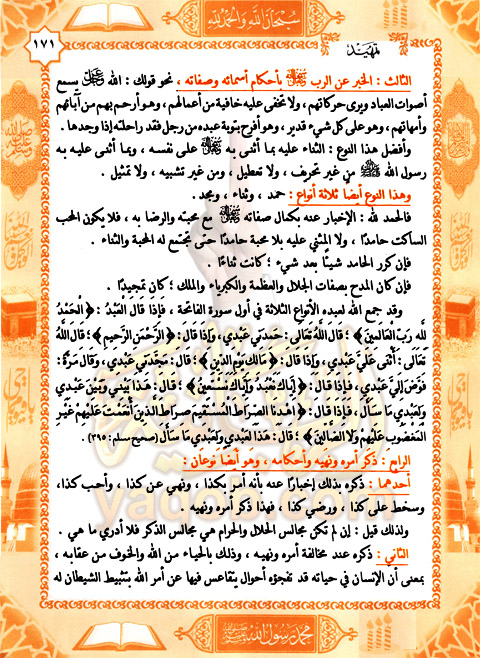 سبحان الله والحمد لله
تمهيد
١٧١
الثالث : الخبر عن الرب ﷻ بأحكام أسمائه وصفاته ، نحو قولك : الله ﷻ يسمع
أصوات العباد ويرى حركاتهم ، ولا تخفى عليه خافية من أعمالهم ، وهو أرحم بهم من آبائهم
وأمهاتهم ، وهو على كل شيء قدير ، وهو أفرح بتوبة عبده من رجل فقد راحلته إذا وجدها .
وأفضل هذا النوع : الثناء عليه بما أثنى به ﷻ على نفسه ، وبما أثنى عليه به
رسول الله ﷺ من غير تحريف ، ولا تعطيل ، ومن غير تشبيه ، ولا تمثيل .
وهذا النوع أيضا ثلاثة أنواع : حمد ، وثناء ، ومجد .
فالحمد لله : الإخبار عنه بكمال صفاته ﷻ مع محبته والرضا به ، فلا يكون المحب
الساكت حامدًا ، ولا المثني عليه بلا محبة حامدًا حتى تجتمع له المحبة والثناء .
فإن كرر الحامد شيئًا بعد شيء ؛ كانت ثناءً .
فإن كان المدح بصفات الجلال والعظمة والكبرياء والملك ؛ كان تمجيدًا .
وقد جمع الله لعبده الأنواع الثلاثة في أول سورة الفاتحة ، فَإِذَا قَالَ الْعَبْدُ : ﴿ الْحَمْدُ
لِلَّهِ رَبِّ الْعَالَمِينَ ﴾ ؛ قَالَ اللَّهُ تَعَالَى : حَمِدَنِي عَبْدِي ، وَإِذَا قَالَ : ﴿ الرَّحْمَنِ الرَّحِيمِ ﴾ ؛ قَالَ اللَّهُ
تَعَالَى : أَثْنَى عَلَيَّ عَبْدِي ، وَإِذَا قَالَ : ﴿ مَالِكِ يَوْمِ الدِّينِ ﴾ ؛ قَالَ : مَجَّدَنِي عَبْدِي ، وَقَالَ مَرَّةً :
فَوَّضَ إِلَيَّ عَبْدِي ، فَإِذَا قَالَ : ﴿ إِيَّاكَ نَعْبُدُ وَإِيَّاكَ نَسْتَعِينُ ﴾ ؛ قَالَ : هَذَا بَيْنِي وَبَيْنَ عَبْدِي
وَلِعَبْدِي مَا سَأَلَ ، فَإِذَا قَالَ : ﴿ اهْدِنَا الصِّرَاطَ الْمُسْتَقِيمَ صِرَاطَ الَّذِينَ أَنْعَمْتَ عَلَيْهِمْ غَيْرِ
الْمَغْضُوبِ عَلَيْهِمْ وَلَا الضَّالِّينَ ﴾ ؛ قَالَ : هَذَا لِعَبْدِي وَلِعَبْدِي مَا سَأَلَ (صحيح مسلم : ٣٩٥) .
الرابع : ذكر أمره ونهيه وأحكامه ، وهو أيضًا نوعان :
أحدهما : ذكره بذلك إخبارًا عنه بأنه أمر بكذا ، ونهى عن كذا ، وأحب كذا،
وسخط على كذا ، ورضي كذا ، فهذا ذكر أمره ونهيه .
ولذلك قيل : إن لم تكن مجالس الحلال والحرام هي مجالس الذكر فلا أدري ما هي .
الثاني : ذكره عند مخالفة أمره ونهيه ، وذلك بالحياء من الله والخوف من عقابه ،
بمعنى أن الإنسان في حياته قد تفجؤه أحوال يتقاعس فيها عن أمر الله بتثبيط الشيطان له
محمد رسول الله ﷺ